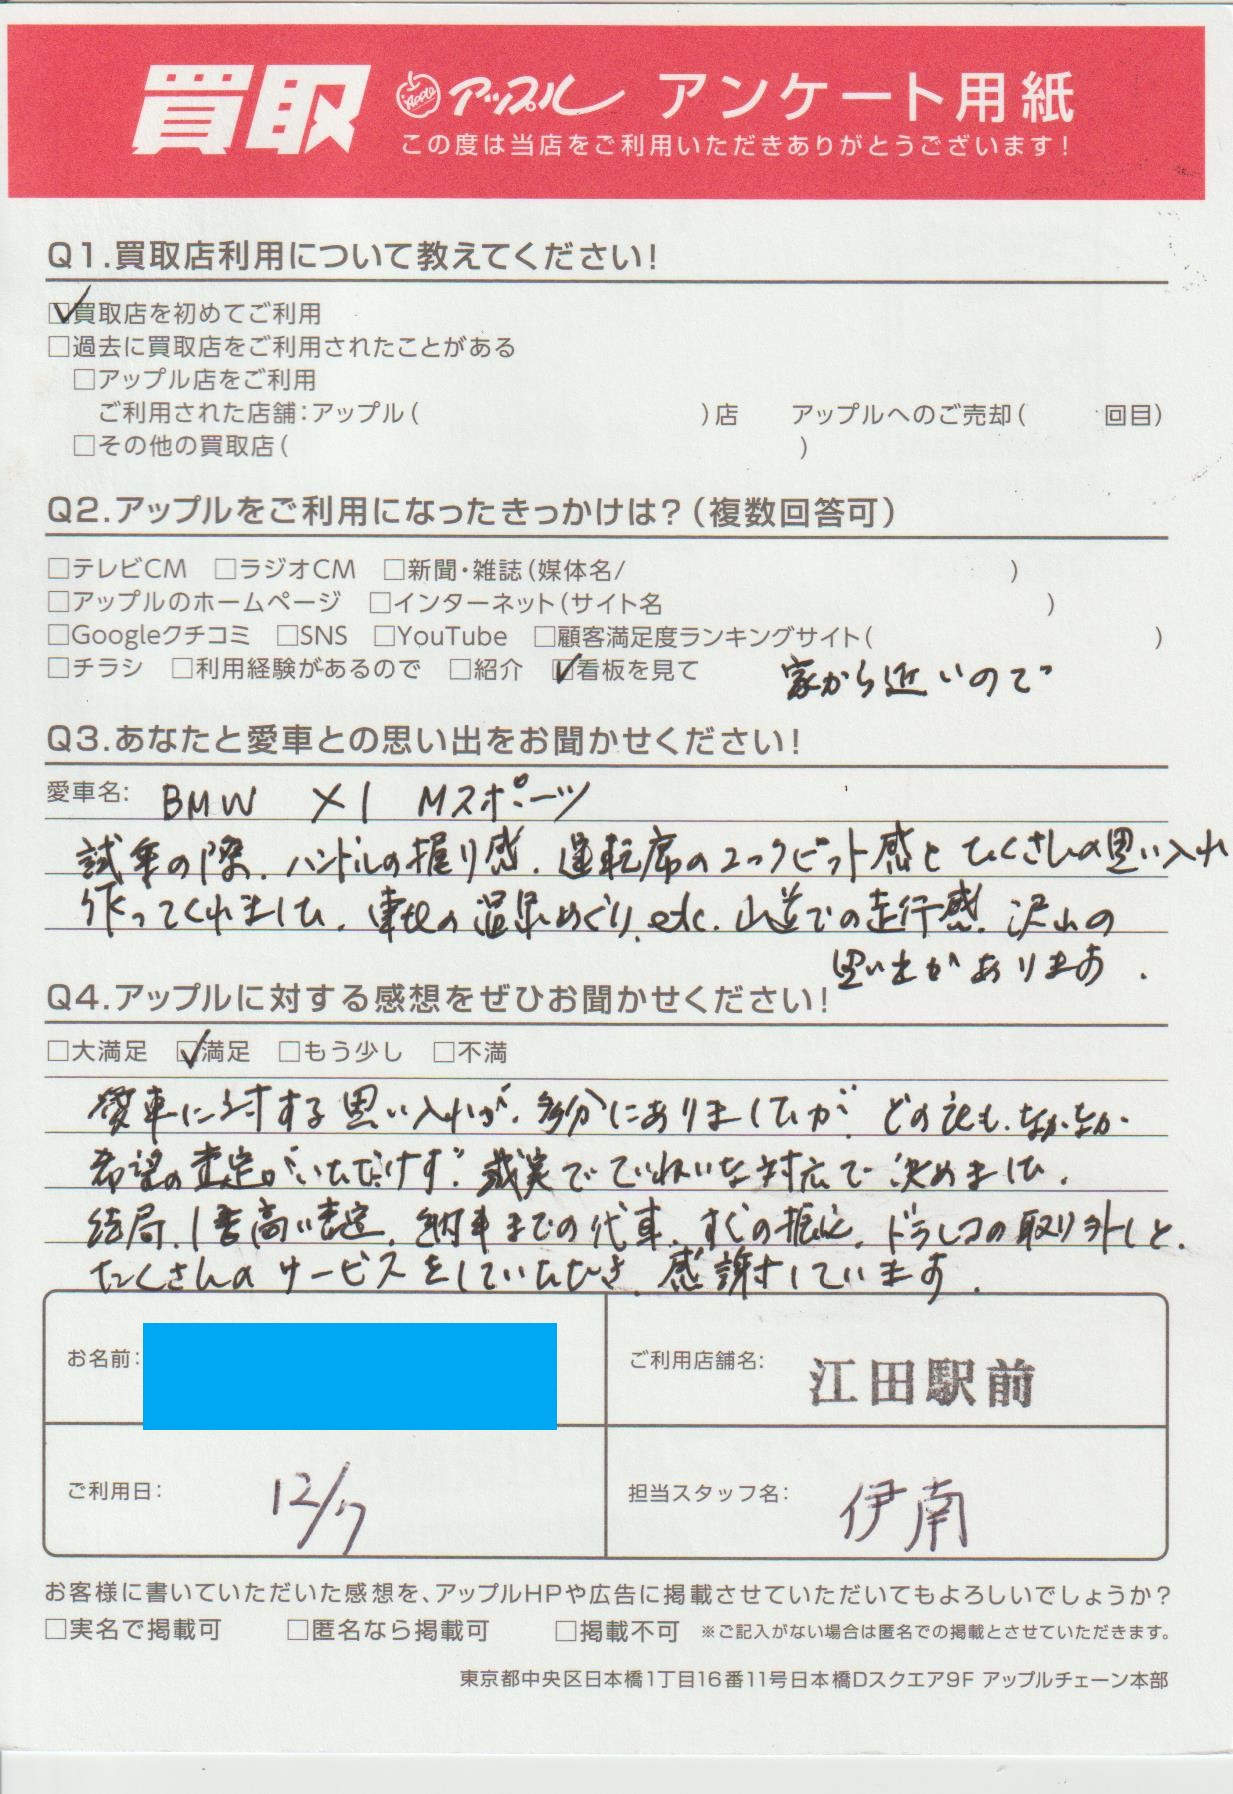 買取 Apple アップル アンケート用紙
この度は当店をご利用いただきありがとうございます!
Q1.買取店利用について教えてください!
☑買取店を初めてご利用
□過去に買取店をご利用されたことがある
□アップル店をご利用
ご利用された店舗:アップル( )店 アップルへのご売却( 回目)
□その他の買取店( )
Q2.アップルをご利用になったきっかけは?(複数回答可)
□テレビCM □ラジオCM □新聞・雑誌(媒体名/ )
□アップルのホームページ □インターネット(サイト名 )
□Googleクチコミ □SNS □YouTube □顧客満足度ランキングサイト( )
□チラシ □利用経験があるので □紹介 ☑看板を見て 家から近いので
Q3.あなたと愛車との思い出をお聞かせください!
愛車名: BMW X1 Mスポーツ
試乗の際、ハンドルの握り感、運転席のコックピット感とたくさんの思い入れ
作ってくれました。車での温泉めぐり、etc. 山道での走行感、沢山の
思い出があります。
Q4.アップルに対する感想をぜひお聞かせください!
□大満足 ☑満足 □もう少し □不満
愛車に対する思い入れが、多分にありましたが、どの店も、なかなか
希望の査定がいただけず、誠実でていねいな対応で決めました。
結局、1番高い査定、納車までの代車、すぐの振込、ドラレコの取り外しと、
たくさんのサービスをしていただき、感謝しています。
お名前: ご利用店舗名: 江田駅前
ご利用日: 12/7 担当スタッフ名: 伊南
お客様に書いていただいた感想を、アップルHPや広告に掲載させていただいてもよろしいでしょうか?
□実名で掲載可 □匿名なら掲載可 □掲載不可 ※ご記入がない場合は匿名での掲載とさせていただきます。
東京都中央区日本橋1丁目16番11号日本橋Dスクエア9F アップルチェーン本部